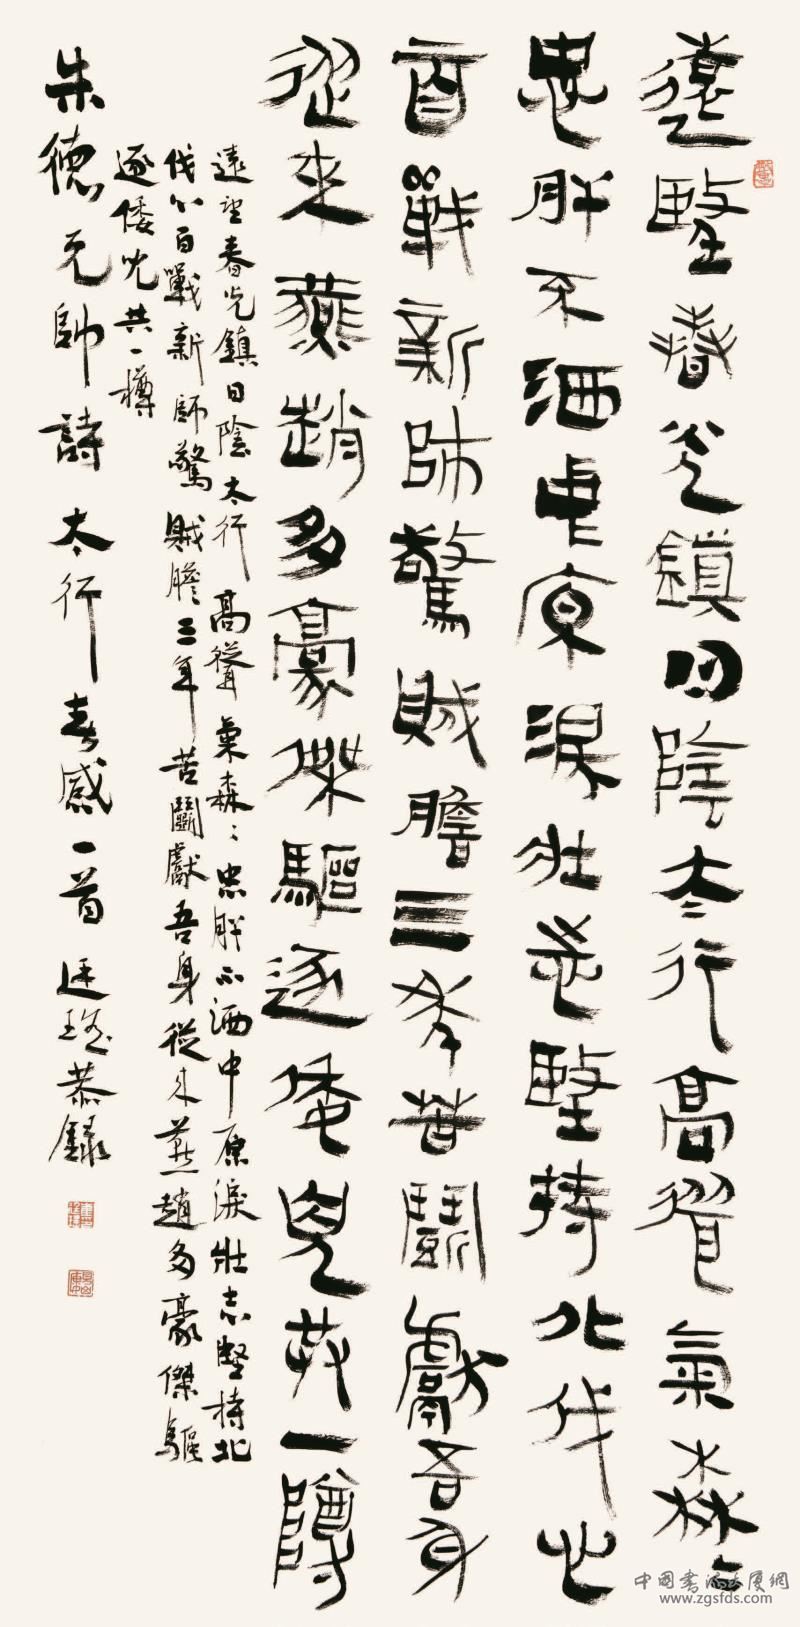 遠望春光鎮日陰太行高聳氣森〻
忠肝不洒中原淚壯志堅持北伐心
百戰新師驚賊膽三年苦鬪獻吾身
從來燕趙多豪傑驅逐倭兒共一樽
遠望春光鎮日陰太行高聳氣森〻忠肝不洒中原淚壯志堅持北
伐心百戰新師驚賊膽三年苦鬪獻吾身從來燕趙多豪傑驅
逐倭兒共一樽
朱德元帥詩太行春感一首廷恭錄
中國書法大廈網
www.zgsfds.com